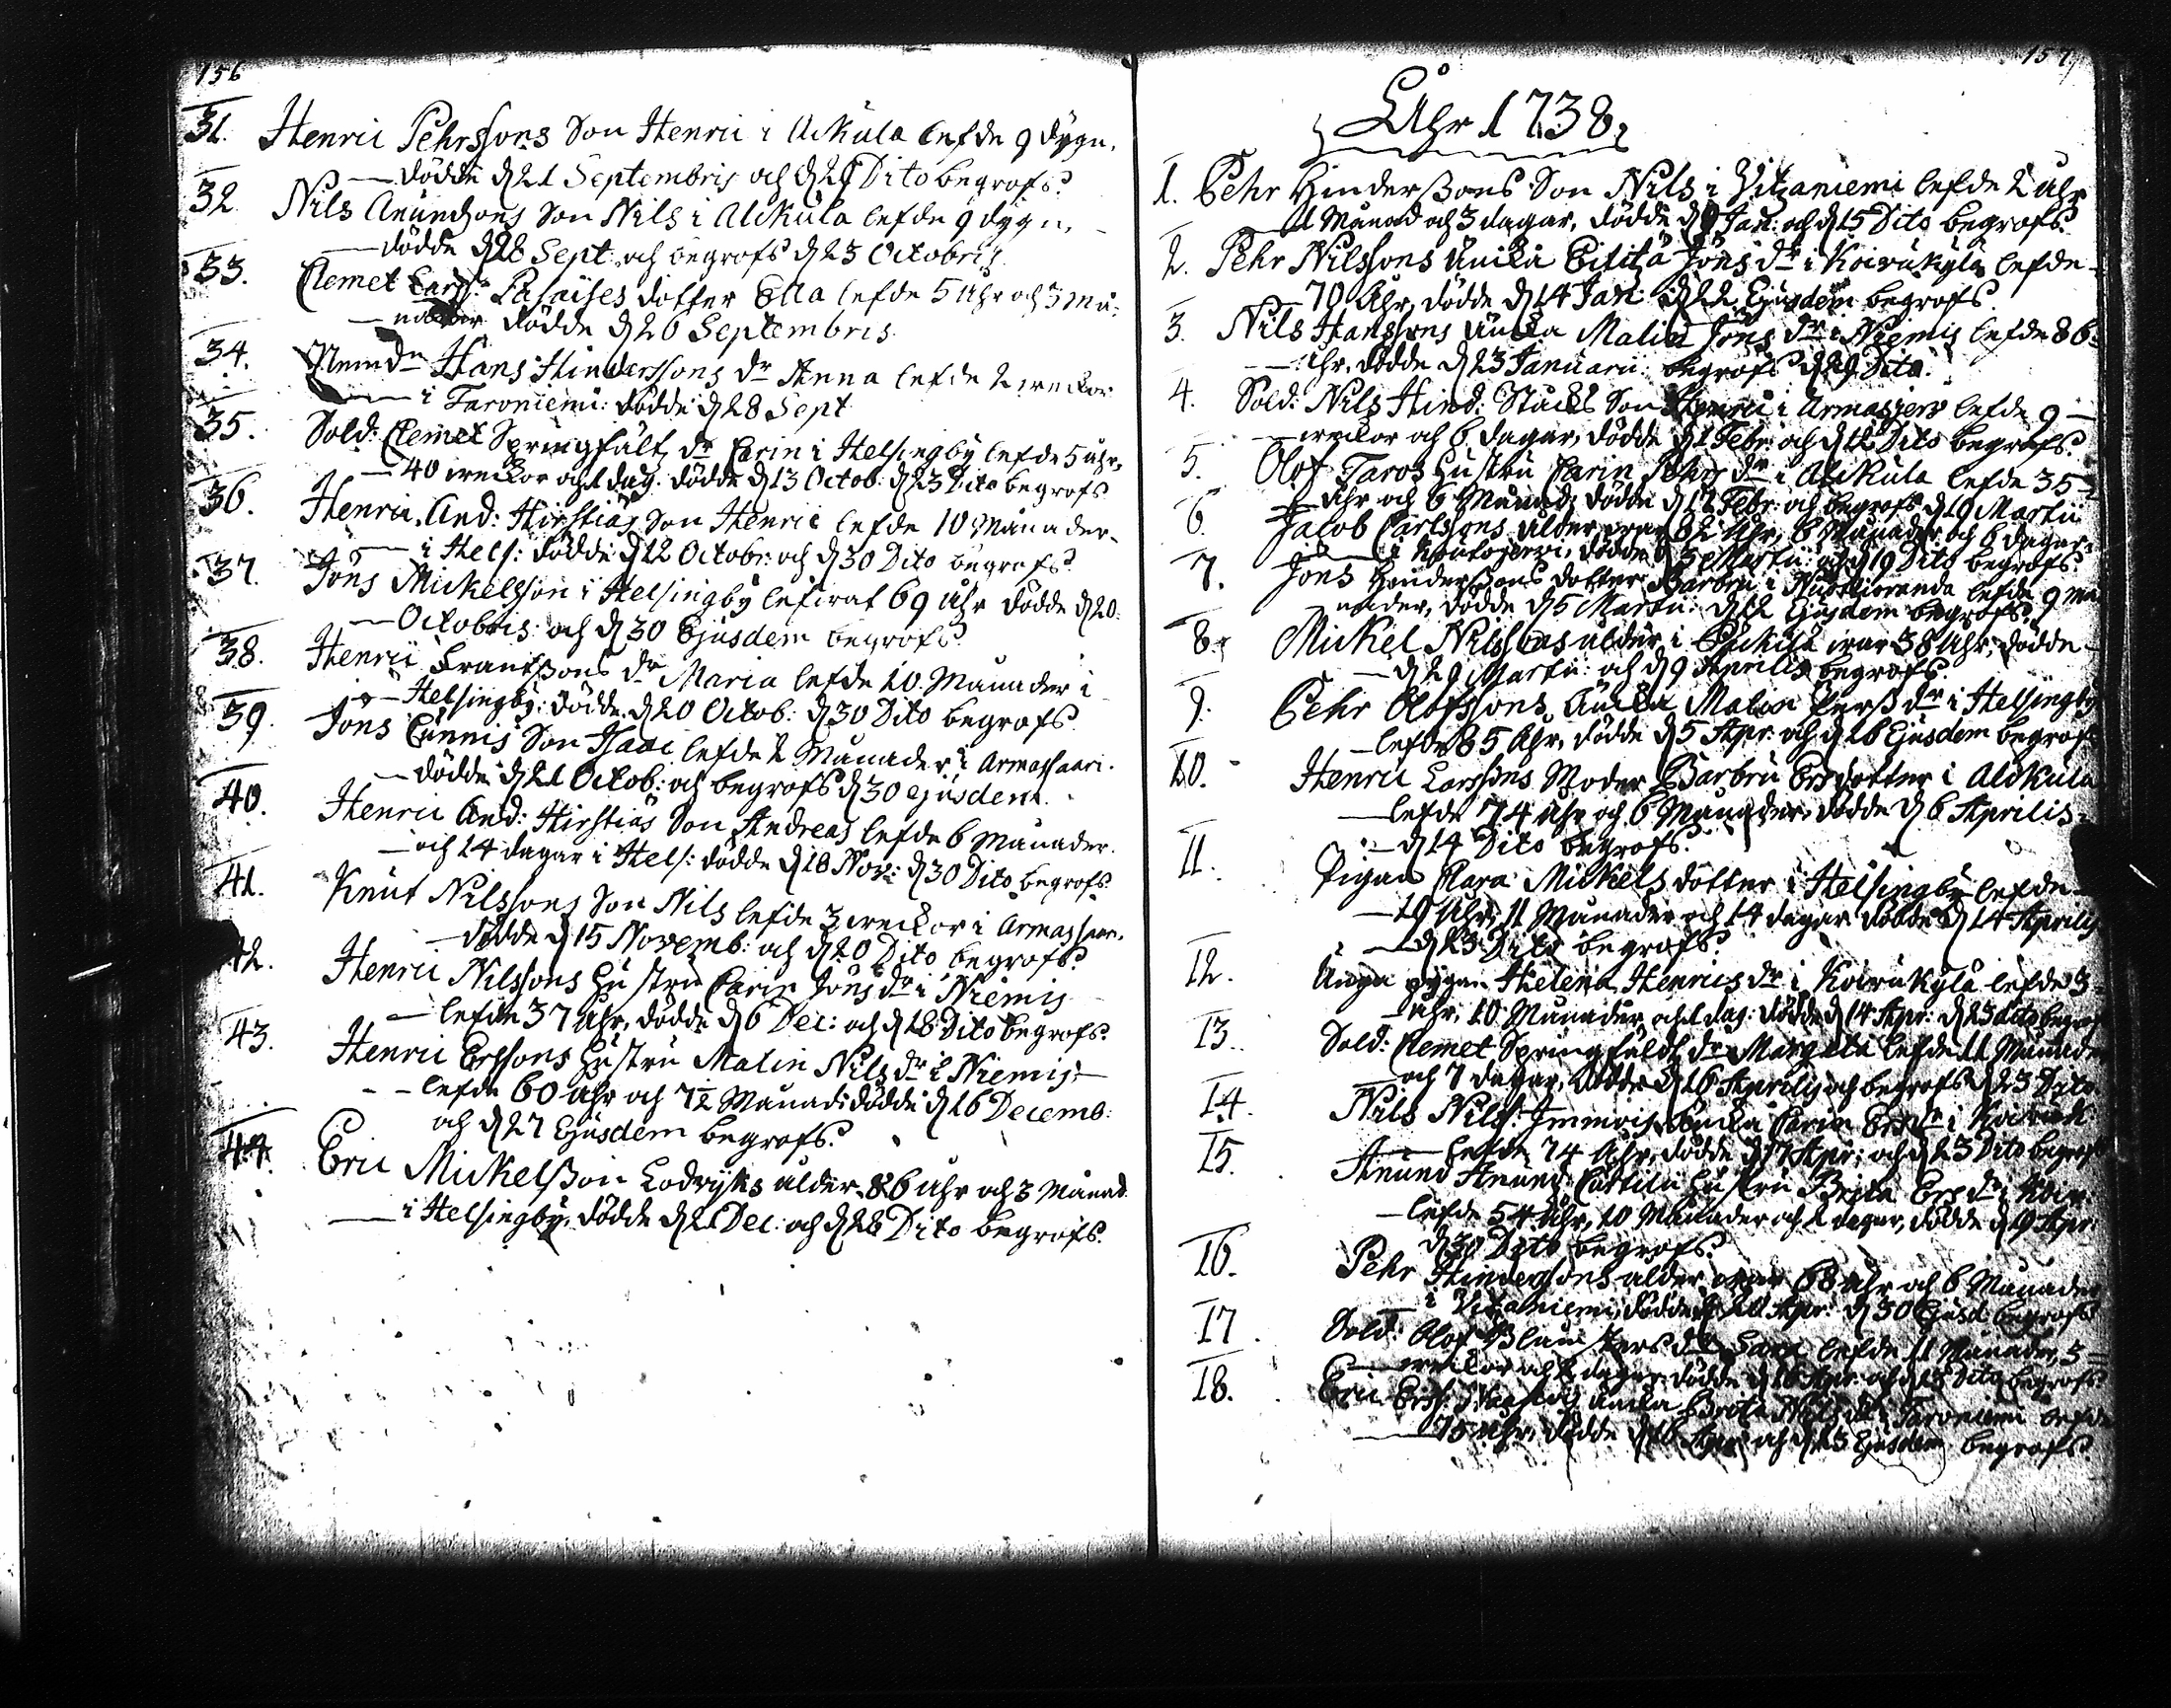 156
31. Henric Pehrssons Son Henric i Alkula lefde 9 dygn,
dödde d 21 Septembris och d 29 Dito begrofs.
32 Nils Anundsons Son Nils i Alckula lefde 9 dygn,
dödde d 28 Sept: och begrofs d 23 Octobris.
33. Clemet Lars: Palaises dotter Ella lefde 5 åhr och 3 Må-
nader dödde d 26 Septembris.
34. Nemdn Hans Hinderssons dr Anna lefde 2 weckor
i Taroniemi: dödde d 28 Sept
35. Sold: Clemet Springfält, dr Carin i Helsingby lefde 5 åhr,
40 weckor och 1 dag. dödde d 13 Octob: d 23 Dito begrofs
36. Henric And: Hirstiäs Son Henric lefde 10 Månader
i Hels: dödde d 22 Octobr: och d 30 Dito begrofs.
37. Jöns Mickelsson i Helsingby lefwat 69 åhr dödde d 20
Octobris: och d 30 Ejusdem begrofs.
38. Henric Frantssons dr Maria lefde 10 Månader i
Helsingby: dödde d 20 Octob: d 30 Dito begrofs.
39. Jöns Cunnis Son Isaac lefde 2 Månader i Armassaari.
dödde d 21 Octob: och begrofs d 30 ejusdem.
40. Henric And: Hirstiäs Son Andreas lefde 6 Månader
och 14 dagar i Hels: dödde d 18 Nov: d 30 Dito begrofs.
41. Knut Nilssons Son Nils lefde 3 weckor i Armassaar.
dödde d 15 Novemb: och d 20 Dito begrofs.
42. Henric Nilssons Hustru Carin Jönsdr i Niemis
lefde 37 åhr, dödde d 6 Dec: och d 18 Dito begrofs.
43. Henric Erssons Hustru Malin Nilsdr i Niemis
lefde 60 åhr och 7½ Månad: dödde d 16 Decemb:
och d 27 Ejusdem begrofs.
44. Eric Mickelsson Lodvyks ålder 86 åhr och 3 Månad
i Helsingby, dödde d 21 Dec: och d 28 Dito begrofs.
157
Åhr 1738,
1. Pehr Hinderssons Son Nils i Vitzaniemi lefde 2 åhr
Månad och 3 dagar, dödde d Jan: och d 15 Dito begrofs.
2. Pehr Nilssons Änckia Jönsdr i Koivukylä lefde
70 åhr, dödde d 14 Jan: d 22 Ejusdem begrofs
3. Nils Hanssons Änckia Malin Jönsdr i Niemis lefde 86
åhr, dödde d 23 Januarii: begrofs d 29 Dito.
4. Sold: Nils Hind: Stacks Son Henric i Armasjerv lefde 9
weckor och 6 dagar, dödde d 1 Febr: och d 12 Dito begrofs.
5. Olof Taros Hustru Carin Pehrsdr i Alckula lefde 35
åhr och 6 Månad, dödde d 12 Febr: och begrofs d 19 Martii
6. Jacob Carlssons ålder war 82 åhr, 8 Månader och 6 dagar
i dödde d 3 Martii och d 19 Dito begrofs.
7. Jöns Hinderssons dotter Barbru i lefde 9 må
nader, dödde d 5 Martii: d 12 Ejusdem begrofs.
8. Mickel Nilssons ålder i war 38 åhr, dödde
d 29 Martii och d 9 Aprilis begrofs.
9. Pehr Olofssons Änckia Malin Persdr i Helsingby
lefde 85 åhr, dödde d 5 Apr: och d 16 Ejusdem begrofs
10. Henric Larssons Moder Barbru Ersdotter i Alckula
lefde 74 åhr och 6 Månader, dödde d 6 Aprilis
d 14 Dito begrofs.
11. Pigan Clara Mickels dotter i Helsingby lefde
19 åhr, 11 Månader och 14 dagar dödde d 14 Aprilis
d 23 Dito begrofs.
12. Unga pygan Helena Henricsdr i Koivukylä lefde 3
åhr, 10 Månader och 1 dag: dödde d 14 Apr: d 23 dito begrofs
13. Sold: Clemet Springfeldt dr Margeta lefde 11 Månader
och 7 dagar, dödde d 16 Aprilis och begrofs d 23 Dito
14. Nils Nilss: Immois Änckia Carin Ersdr i
lefde 74 åhr, dödde d 17 Apr: och d 23 Dito begrofs
15. Anund Anund: Hustru Brita Ersdr i Koiv
lefde 54 åhr, 10 Månader och 2 dagar, dödde d 19 Apr
d 30 Dito begrofs.
16. Pehr Hinderssons ålder war 68 åhr och 6 Månader
i Vitzaniemi, dödde d 20 Apr: d 30 Ejusd begrofs
17 Sold: Olof dr Sara lefde 11 Månader, 3
weckor och 2 dagar dödde d 16 Apr: och d 23 Dito begrofs.
18. Eric Erss: Änckia Brita Nilsdr i Taroniemi lefde
75 åhr, dödde d 16 Apr: och d 23 Ejusdem begrofs.